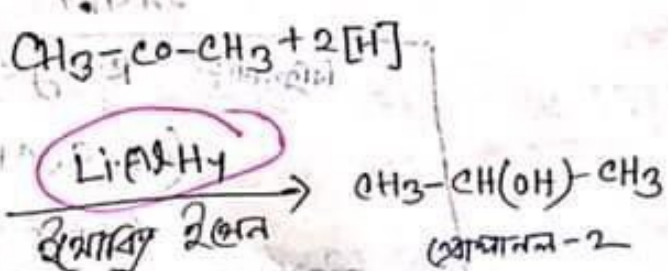 CH3-CO-CH3+2[H]
LiAlH4
CH3-CH(OH)-CH3
প্রোপানল-2